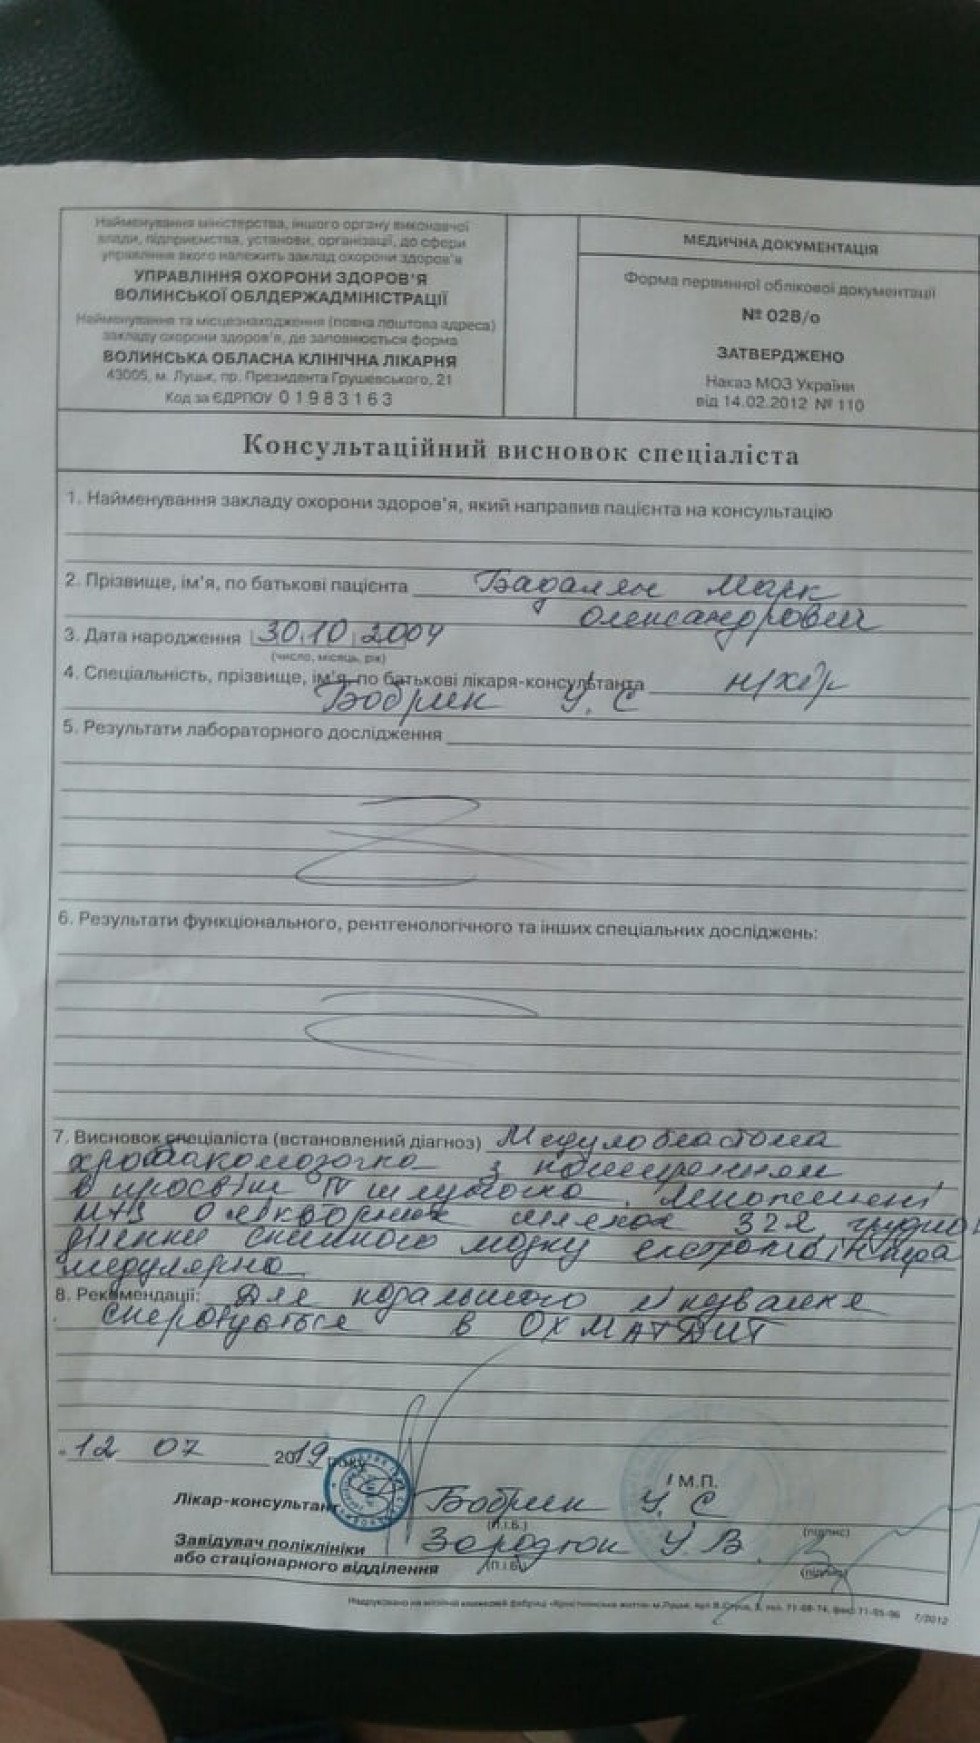 Найменування міністерства, іншого органу виконавчої
влади, підприємства, установи, організації, до сфери
управління якого належить заклад охорони здоров'я
УПРАВЛІННЯ ОХОРОНИ ЗДОРОВ'Я
ВОЛИНСЬКОЇ ОБЛДЕРЖАДМІНІСТРАЦІЇ
Найменування та місцезнаходження (повна поштова адреса)
закладу охорони здоров'я, де заповнюється форма
ВОЛИНСЬКА ОБЛАСНА КЛІНІЧНА ЛІКАРНЯ
43005, м. Луцьк, пр. Президента Грушевського, 21
Код за ЄДРПОУ 01983163
МЕДИЧНА ДОКУМЕНТАЦІЯ
Форма первинної облікової документації
№ 028/о
ЗАТВЕРДЖЕНО
Наказ МОЗ України
від 14.02.2012 № 110
Консультаційний висновок спеціаліста
1. Найменування закладу охорони здоров'я, який направив пацієнта на консультацію
2. Прізвище, ім'я, по батькові пацієнта Бадалян Марк
Олександрович
3. Дата народження 30 10 2004
(число, місяць, рік)
4. Спеціальність, прізвище, ім'я, по батькові лікаря-консультанта н/хір
Бобрик У. С
5. Результати лабораторного дослідження
6. Результати функціонального, рентгенологічного та інших спеціальних досліджень:
7. Висновок спеціаліста (встановлений діагноз) Медулобластома
хробака мозочка з поширенням
в просвіт IV шлуночка
грудної
ділянки спинного мозку
медулярно
8. Рекомендації: Для подальшого лікування
скеровується в ОХМАТДИТ
" 12 07 2019 року
М.П.
Лікар-консультант Бобрик У. С
(П.І.Б.) (підпис)
Завідувач поліклініки
або стаціонарного відділення У В.
(П.І.Б.) (підпис)
7/2012